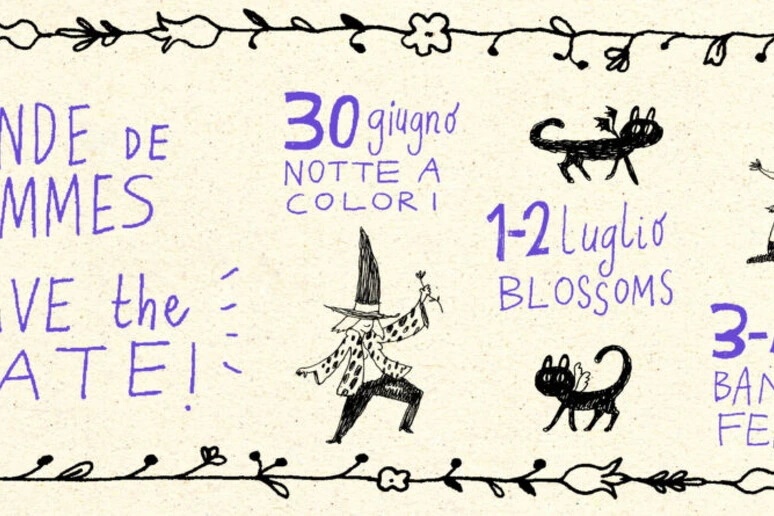 NDE DE
MMES
VE the
ATE!
30 giugno
NOTTE A
COLORI
1-2 luglio
BLOSSOMS
3-
BAN
FE